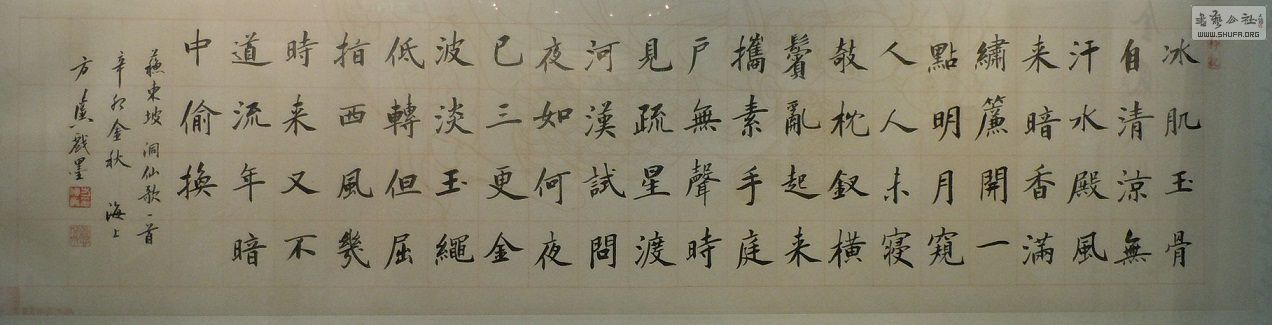 冰肌玉骨
自清涼無
汗水殿風
来暗香滿
繡簾開一
點明月窺
人人未寢
敧枕釵横
鬢亂起来
攜素手庭
户無聲時
見疏星渡
河漢試問
夜如何夜
已三更金
波淡玉繩
低轉但屈
指西風幾
時来又不
道流年暗
中偷換
蘇東坡洞仙歌一首
辛卯金秋 海上
方 戲墨
書藝公社
WWW.SHUFA.ORG